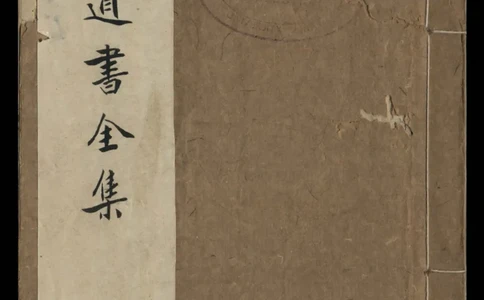 道書全集